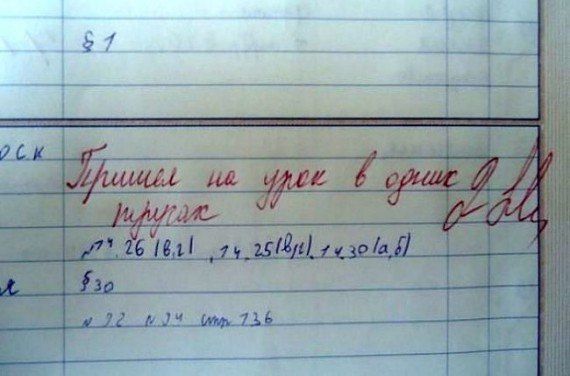 § 1
оск
Пришел на урок в одних
трусах
№14.26(в,г), 14.25(в,г), 14.30(а,б)
я §30
№ 22 № 24 стр 136